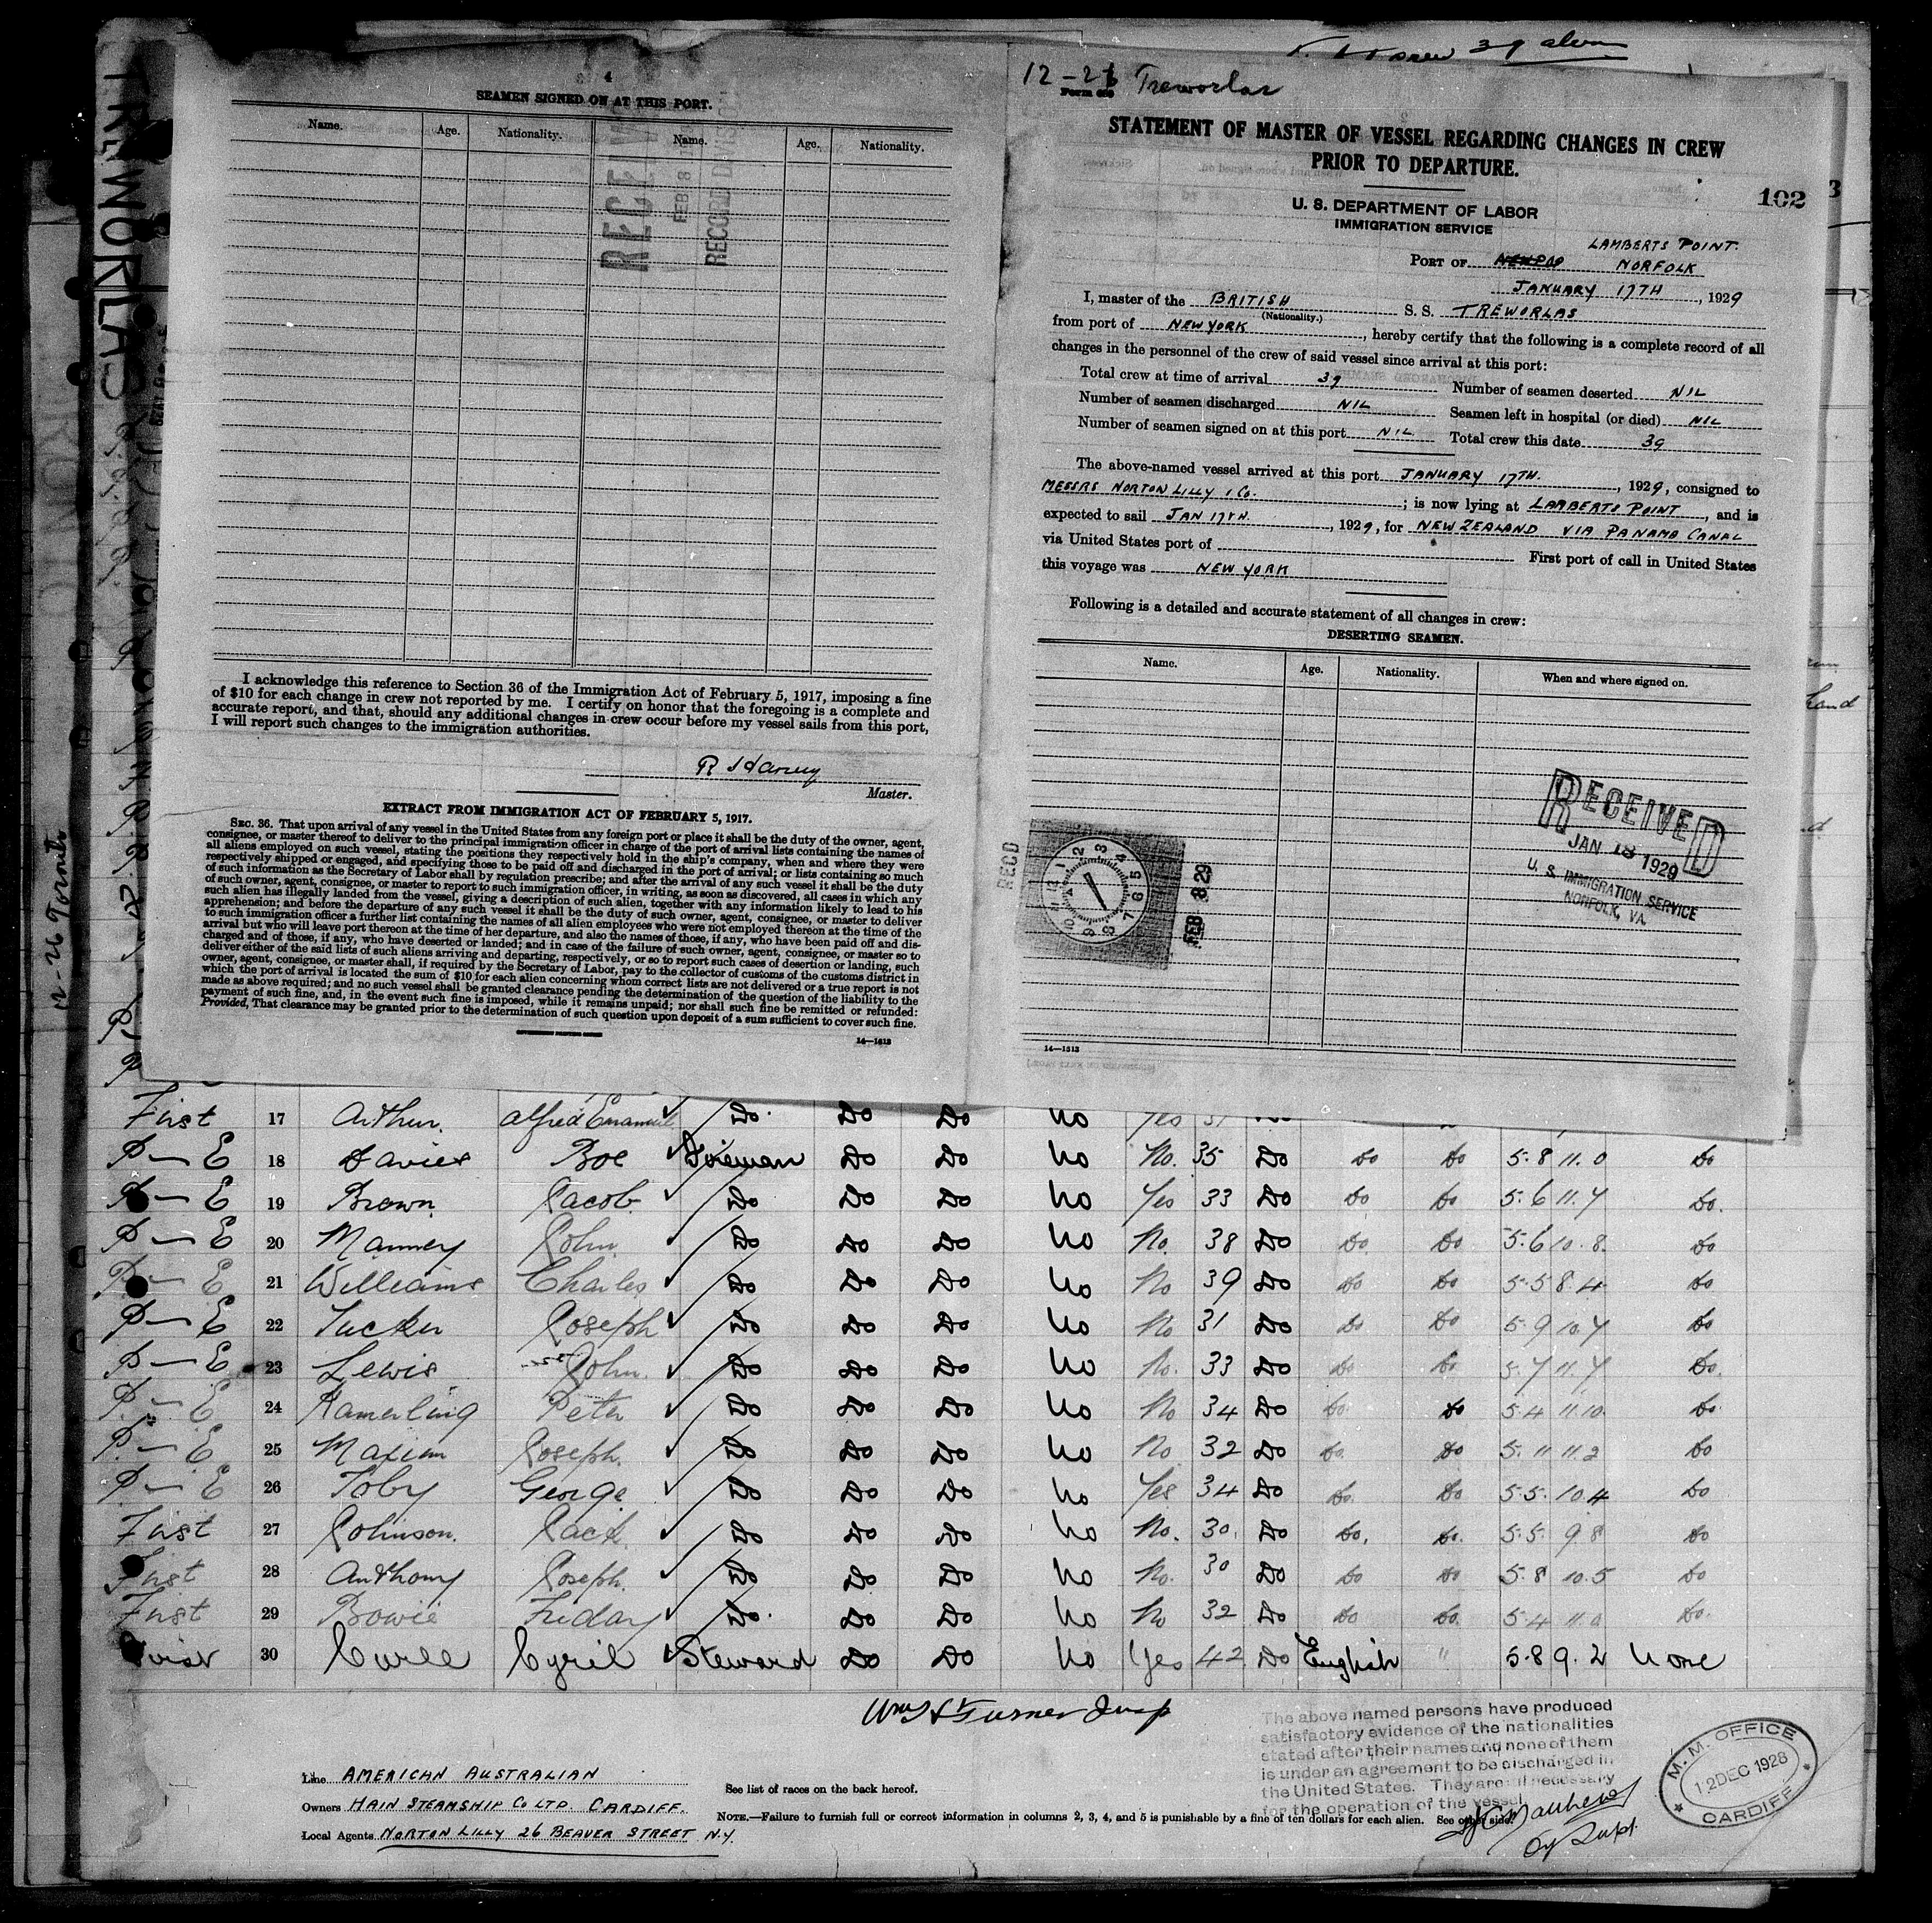 12-26 Treworlas
4
SEAMEN SIGNED ON AT THIS PORT.
Name. Age. Nationality. Name. Age. Nationality.
RECEIVED
FEB 8
RECORD DIVISION
I acknowledge this reference to Section 36 of the Immigration Act of February 5, 1917, imposing a fine
of $10 for each change in crew not reported by me. I certify on honor that the foregoing is a complete and
accurate report, and that, should any additional changes in crew occur before my vessel sails from this port,
I will report such changes to the immigration authorities.
R Harvey
Master.
EXTRACT FROM IMMIGRATION ACT OF FEBRUARY 5, 1917.
SEC. 36. That upon arrival of any vessel in the United States from any foreign port or place it shall be the duty of the owner, agent,
consignee, or master thereof to deliver to the principal immigration officer in charge of the port of arrival lists containing the names of
all aliens employed on such vessel, stating the positions they respectively hold in the ship's company, when and where they were
respectively shipped or engaged, and specifying those to be paid off and discharged in the port of arrival; or lists containing so much
of such information as the Secretary of Labor shall by regulation prescribe; and after the arrival of any such vessel it shall be the duty
of such owner, agent, consignee, or master to report to such immigration officer, in writing, as soon as discovered, all cases in which any
such alien has illegally landed from the vessel, giving a description of such alien, together with any information likely to lead to his
apprehension; and before the departure of any such vessel it shall be the duty of such owner, agent, consignee, or master to deliver
to such immigration officer a further list containing the names of all alien employees who were not employed thereon at the time of the
arrival but who will leave port thereon at the time of her departure, and also the names of those, if any, who have been paid off and dis-
charged and of those, if any, who have deserted or landed; and in case of the failure of such owner, agent, consignee, or master so to
deliver either of the said lists of such aliens arriving and departing, respectively, or so to report such cases of desertion or landing, such
owner, agent, consignee, or master shall, if required by the Secretary of Labor, pay to the collector of customs of the customs district in
which the port of arrival is located the sum of $10 for each alien concerning whom correct lists are not delivered or a true report is not
made as above required; and no such vessel shall be granted clearance pending the determination of the question of the liability to the
payment of such fine, and, in the event such fine is imposed, while it remains unpaid; nor shall such fine be remitted or refunded:
Provided, That clearance may be granted prior to the determination of such question upon deposit of a sum sufficient to cover such fine.
14—1613
Form 689
STATEMENT OF MASTER OF VESSEL REGARDING CHANGES IN CREW
PRIOR TO DEPARTURE.
102
U. S. DEPARTMENT OF LABOR
IMMIGRATION SERVICE
LAMBERTS POINT.
PORT OF NORFOLK
JANUARY 17TH, 1929
I, master of the BRITISH S. S. TREWORLAS
(Nationality.)
from port of NEW YORK, hereby certify that the following is a complete record of all
changes in the personnel of the crew of said vessel since arrival at this port:
Total crew at time of arrival 39 Number of seamen deserted NIL
Number of seamen discharged NIL Seamen left in hospital (or died) NIL
Number of seamen signed on at this port NIL Total crew this date 39
The above-named vessel arrived at this port JANUARY 17TH., 1929, consigned to
MESSRS NORTON LILLY & Co.; is now lying at LAMBERTS POINT, and is
expected to sail JAN 17TH., 1929, for NEW ZEALAND VIA PANAMA CANAL
via United States port of First port of call in United States
this voyage was NEW YORK
Following is a detailed and accurate statement of all changes in crew:
DESERTING SEAMEN.
Name. Age. Nationality. When and where signed on.
RECEIVED
JAN 18 1929
U. S. IMMIGRATION SERVICE
NORFOLK, VA.
RECD
1 2 3 4 5 6 7 8 9 10 11 12
FEB 8 29
14—1613
TREWORLAS
First 17 Arthur. Alfred Emanuel Do. Do Do No Yes 31
P — E 18 Davies Boe Fireman Do Do No No. 35 Do Do Do 5.8 11.0 Do
P — E 19 Brown Jacob Do Do Do No Yes 33 Do Do Do 5.6 11.7 Do.
P — E 20 Manney John Do Do Do No No. 38 Do Do Do 5.6 10.8. Do
P — E 21 Williams Charles Do Do Do No No 39 Do Do Do 5.5 8.4 Do
P — E 22 Tucker Joseph Do Do Do No No 31 Do Do Do 5.9 10.7 Do
P — E 23 Lewis John. Do Do Do No No. 33 Do Do Do 5.7 11.7 Do.
P — E 24 Kamerling Peter Do Do Do No No 34 Do Do. Do 5.4 11.10 Do
P — E 25 Maxim Joseph. Do Do Do No No. 32 Do Do. Do 5.11 11.2 Do
P — E 26 Toby George Do Do Do No Yes 34 Do Do. Do 5.5. 10.4 Do
First 27 Johnson. Jack. Do Do Do No No. 30. Do Do. Do. 5.5. 9.8 Do
First 28 Anthony Joseph. Do Do Do No No. 30 Do Do Do 5.8 10.5 Do
First 29 Bowie Friday Do. Do Do No No 32 Do Do Do. 5.4 11.0 Do.
First 30 Curll Cyril Steward Do Do No Yes 42 Do English " 5.8 9.2 None
Wm S Turner Insp
The above named persons have produced
satisfactory evidence of the nationalities
stated after their names and none of them
is under an agreement to be discharged in
the United States. They are all necessary
for the operation of the vessel.
M. M. OFFICE
12 DEC 1928
CARDIFF
Line AMERICAN AUSTRALIAN
Owners HAIN STEAMSHIP Co LTD. CARDIFF.
Local Agents NORTON LILLY 26 BEAVER STREET N.Y.
See list of races on the back hereof.
NOTE.—Failure to furnish full or correct information in columns 2, 3, 4, and 5 is punishable by a fine of ten dollars for each alien. See other side.
Matthews
Dy Supt.